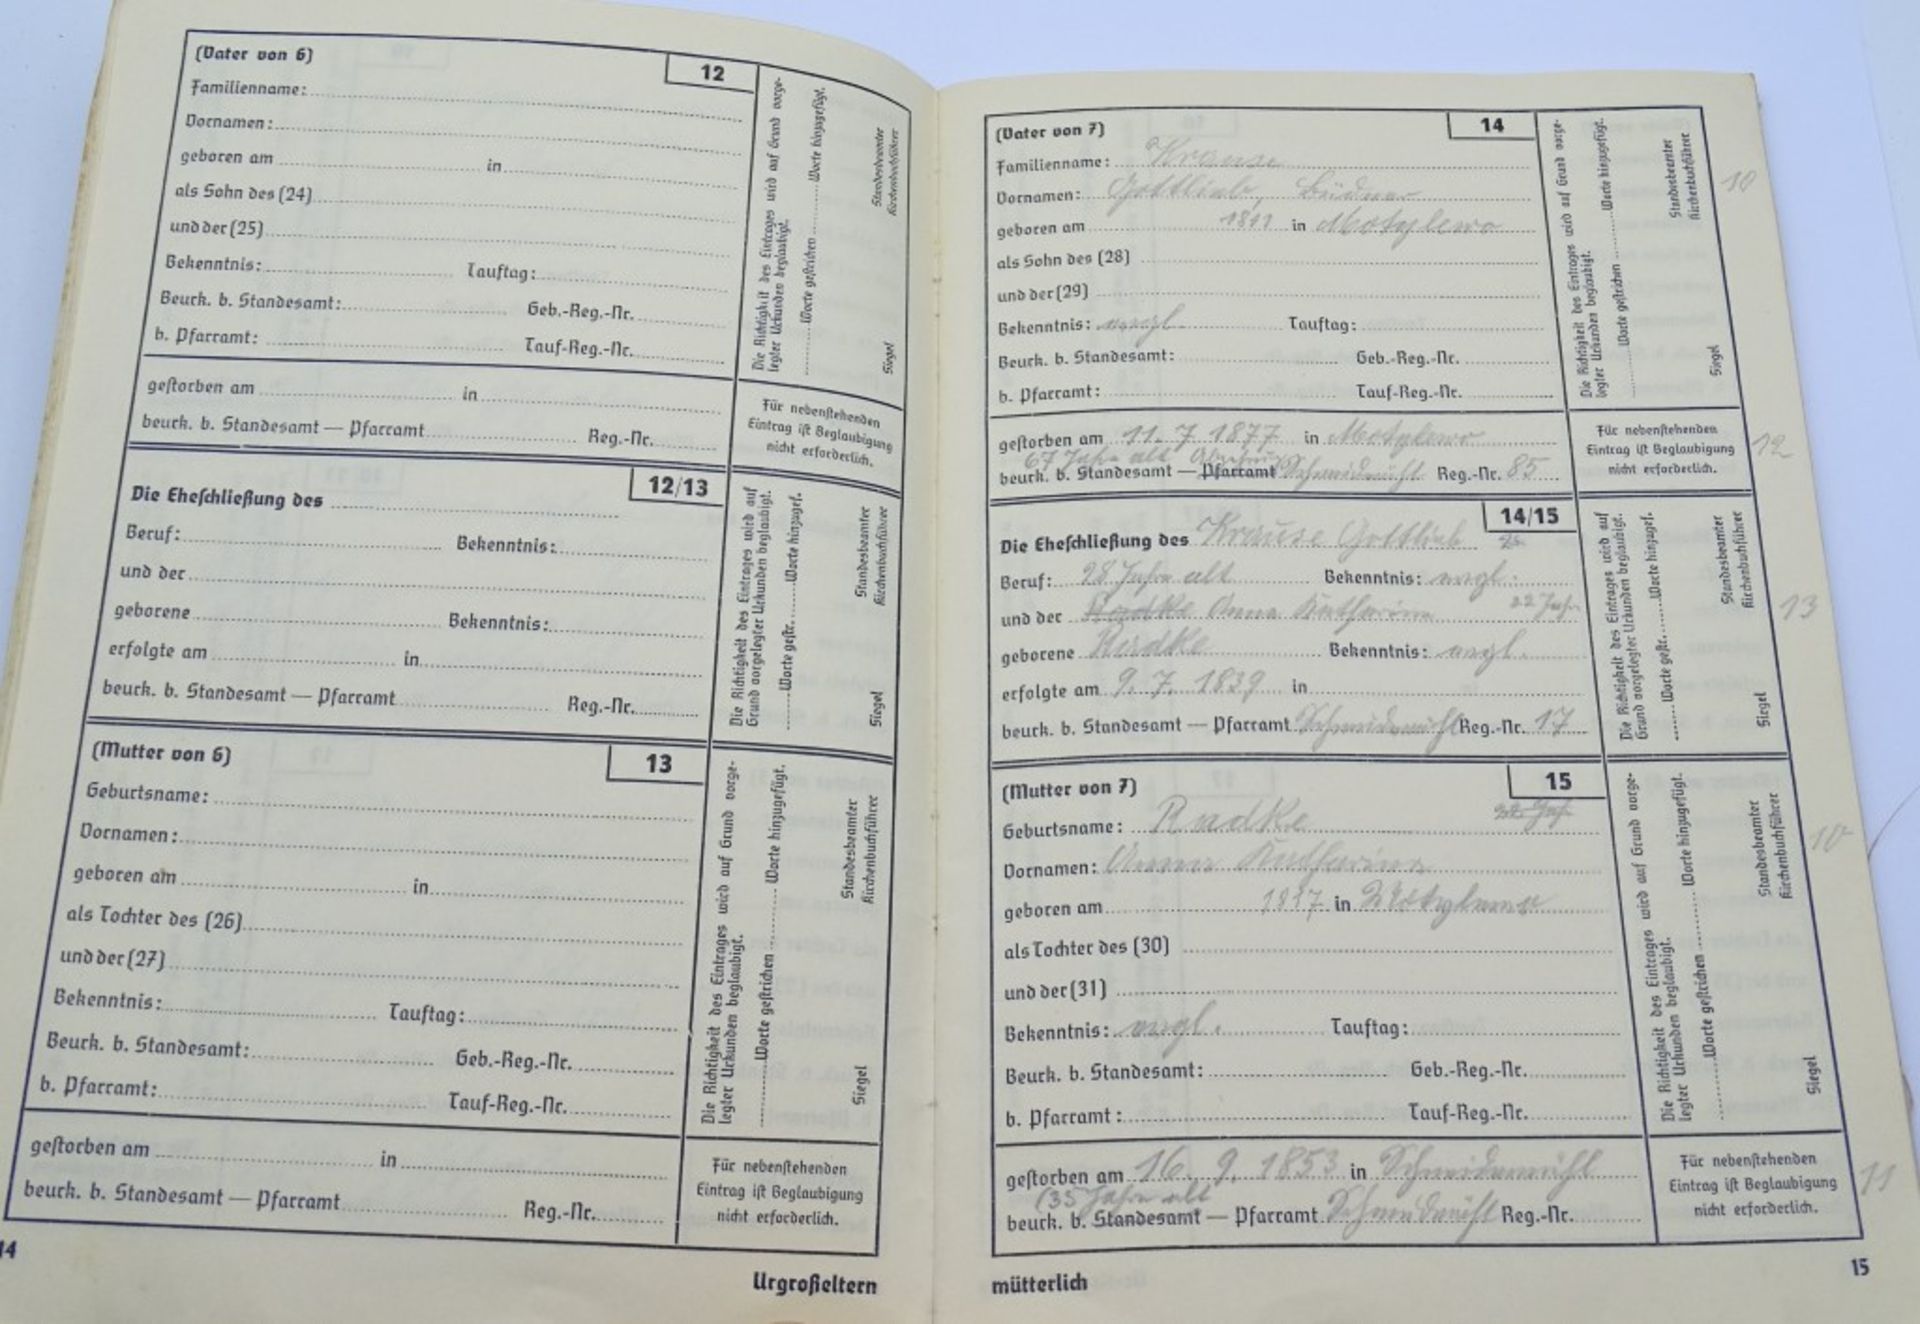 (Vater von 6)
12
Familienname:
Vornamen:
geboren am in
als Sohn des (24)
und der (25)
Bekenntnis: Tauftag:
Beurk. b. Standesamt: Geb.-Reg.-Nr.
b. Pfarramt: Tauf-Reg.-Nr.
Die Richtigkeit des Eintrages wird auf Grund vorge-
legter Urkunden beglaubigt.
Worte gestrichen Worte hinzugefügt.
Standesbeamter
Kirchenbuchführer
Siegel
gestorben am in
beurk. b. Standesamt — Pfarramt Reg.-Nr.
Für nebenstehenden
Eintrag ist Beglaubigung
nicht erforderlich.
12/13
Die Eheschließung des
Beruf: Bekenntnis:
und der
geborene Bekenntnis:
erfolgte am in
beurk. b. Standesamt — Pfarramt Reg.-Nr.
Die Richtigkeit des Eintrages wird auf
Grund vorgelegter Urkunden beglaubigt.
Worte gestr. Worte hinzugef.
Standesbeamter
Kirchenbuchführer
Siegel
(Mutter von 6)
13
Geburtsname:
Vornamen:
geboren am in
als Tochter des (26)
und der (27)
Bekenntnis: Tauftag:
Beurk. b. Standesamt: Geb.-Reg.-Nr.
b. Pfarramt: Tauf-Reg.-Nr.
Die Richtigkeit des Eintrages wird auf Grund vorge-
legter Urkunden beglaubigt.
Worte gestrichen Worte hinzugefügt.
Standesbeamter
Kirchenbuchführer
Siegel
gestorben am in
beurk. b. Standesamt — Pfarramt Reg.-Nr.
Für nebenstehenden
Eintrag ist Beglaubigung
nicht erforderlich.
14
Urgroßeltern
(Vater von 7)
14
Familienname: Krause
Vornamen: Gottlieb, Büdner
geboren am in Motylewo
als Sohn des (28)
und der (29)
Bekenntnis: evgl.
Tauftag:
Beurk. b. Standesamt: Geb.-Reg.-Nr.
b. Pfarramt: Tauf-Reg.-Nr.
Die Richtigkeit des Eintrages wird auf Grund vorge-
legter Urkunden beglaubigt.
Worte gestrichen Worte hinzugefügt.
Standesbeamter
Kirchenbuchführer
Siegel
10
gestorben am 11. 7. 1877 in Motylewo
67 Jahre alt
beurk. b. Standesamt — Pfarramt Schneidemühl Reg.-Nr. 85
Für nebenstehenden
Eintrag ist Beglaubigung
nicht erforderlich.
12
14/15
Die Eheschließung des Krause Gottlieb
Beruf: 28 Jahre alt Bekenntnis: evgl.
und der Radke Anna Katharina 22 Jahr
geborene Radke Bekenntnis: evgl.
erfolgte am 9. 7. 1839 in
beurk. b. Standesamt — Pfarramt Schneidemühl Reg.-Nr. 17
Die Richtigkeit des Eintrages wird auf
Grund vorgelegter Urkunden beglaubigt.
Worte gestr. Worte hinzugef.
Standesbeamter
Kirchenbuchführer
Siegel
13
(Mutter von 7)
15
Geburtsname: Radke
Vornamen: Anna Katharina
geboren am in Motylewo
als Tochter des (30)
und der (31)
Bekenntnis: evgl.
Tauftag:
Beurk. b. Standesamt: Geb.-Reg.-Nr.
b. Pfarramt: Tauf-Reg.-Nr.
Die Richtigkeit des Eintrages wird auf Grund vorge-
legter Urkunden beglaubigt.
Worte gestrichen Worte hinzugefügt.
Standesbeamter
Kirchenbuchführer
Siegel
gestorben am 16. 9. 1853 in Schneidemühl
(35 Jahre alt
beurk. b. Standesamt — Pfarramt Schneidemühl Reg.-Nr.
Für nebenstehenden
Eintrag ist Beglaubigung
nicht erforderlich.
11
mütterlich
15